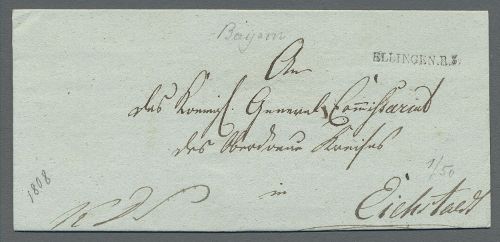 Bayern
ELLINGEN.R.3.
An
das Koenigl. General, Commissariat
des Oberdonau Kreises
1/50
in
1808
Eichstaedt